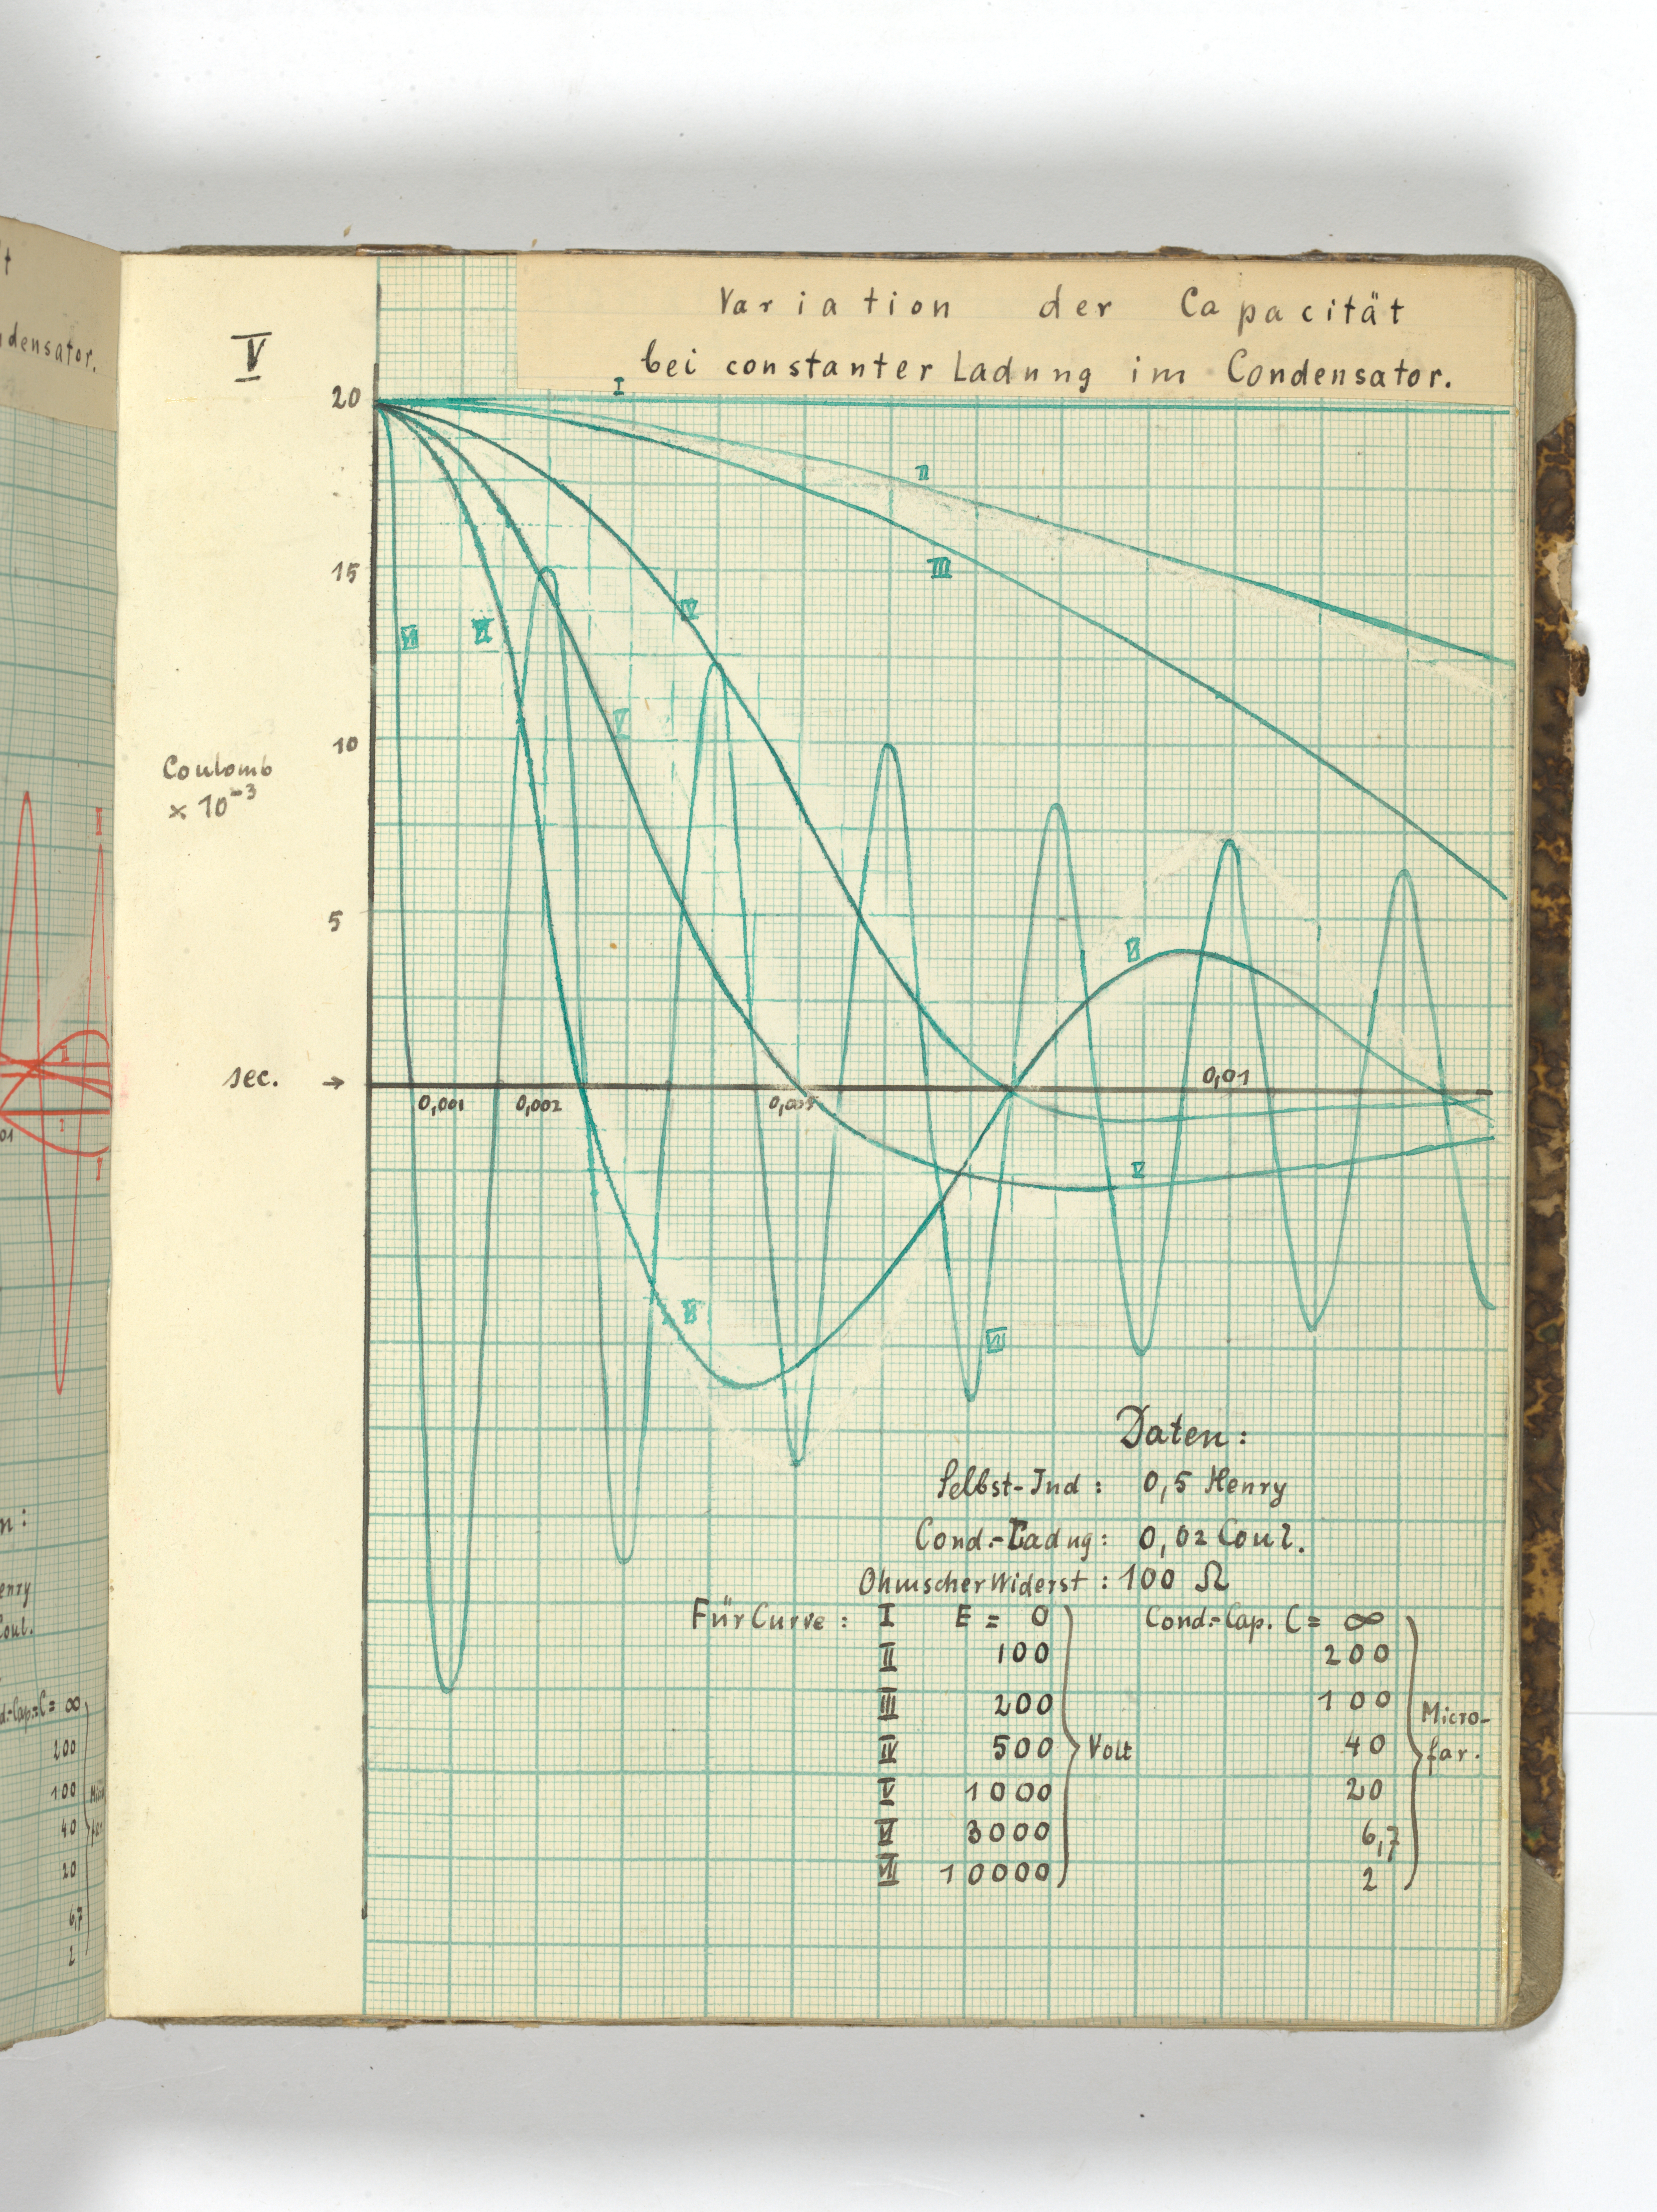 t
ndensator.
V
Variation der Capacität
bei constanter Ladung im Condensator.
I
20
II
15
III
IV
VII
VI
V
10
Coulomb
× 10⁻³
5
VI
sec. →
0,001
0,002
0,005
0,01
V
VI
VII
Daten:
Selbst-Ind: 0,5 Henry
Cond.-Ladng: 0,02 Coul.
Ohmscher Widerst: 100 Ω
Für Curve: I E = 0 Cond.-Cap. C = ∞
II 100 200
III 200 100
IV 500 Volt 40 Micro-
far.
V 1000 20
VI 3000 6,7
VII 10000 2
n:
enry
Coul.
d.-Cap. C = ∞
200
100
40
20
6,7
2